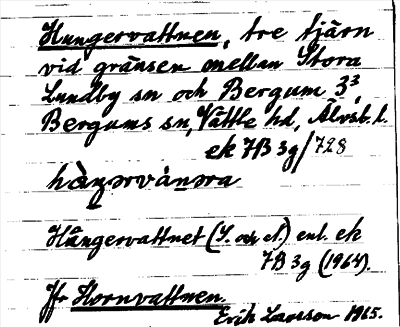 Hungervattnen, tre tjärn
vid gränsen mellan Stora
Lundby sn och Bergum 3³,
Bergums sn, Vättle hd, Älvsb. l.
ek 7B 3g/728
hàŋərvàn̥əra
Hångervattnet (S. och N.) enl. ek
7B 3g (1964).
Jfr Hornvattnen.
Erik Larsson 1965.